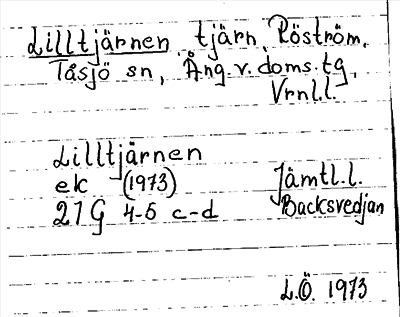 Lilltjärnen tjärn, Röström,
Tåsjö sn, Ång.v.doms.tg,
Vrnl.l.
Lilltjärnen
ek (1973) Jämtl.l.
21G 4-5 c-d Backsvedjan
L.Ö. 1973